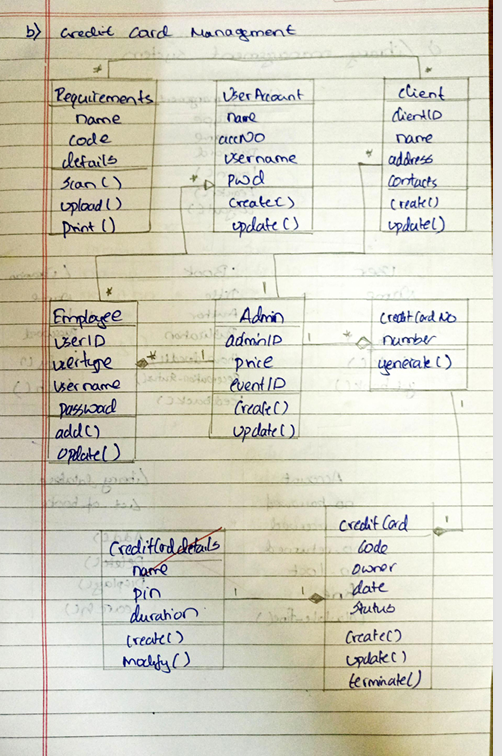 b) Credit Card Management
Requirements
name
code
details
scan()
upload()
print()
UserAccount
name
accNO
username
pwd
create()
update()
client
clientID
name
address
contacts
create()
update()
*
*
*
*
*
1
Employee
userID
usertype
username
password
add()
update()
*
1
Admin
adminID
price
eventID
create()
update()
1
*
creditCardNo
number
generate()
1
1
creditCarddetails
name
pin
duration
create()
Modify()
1
1
creditCard
code
owner
date
status
create()
update()
terminate()